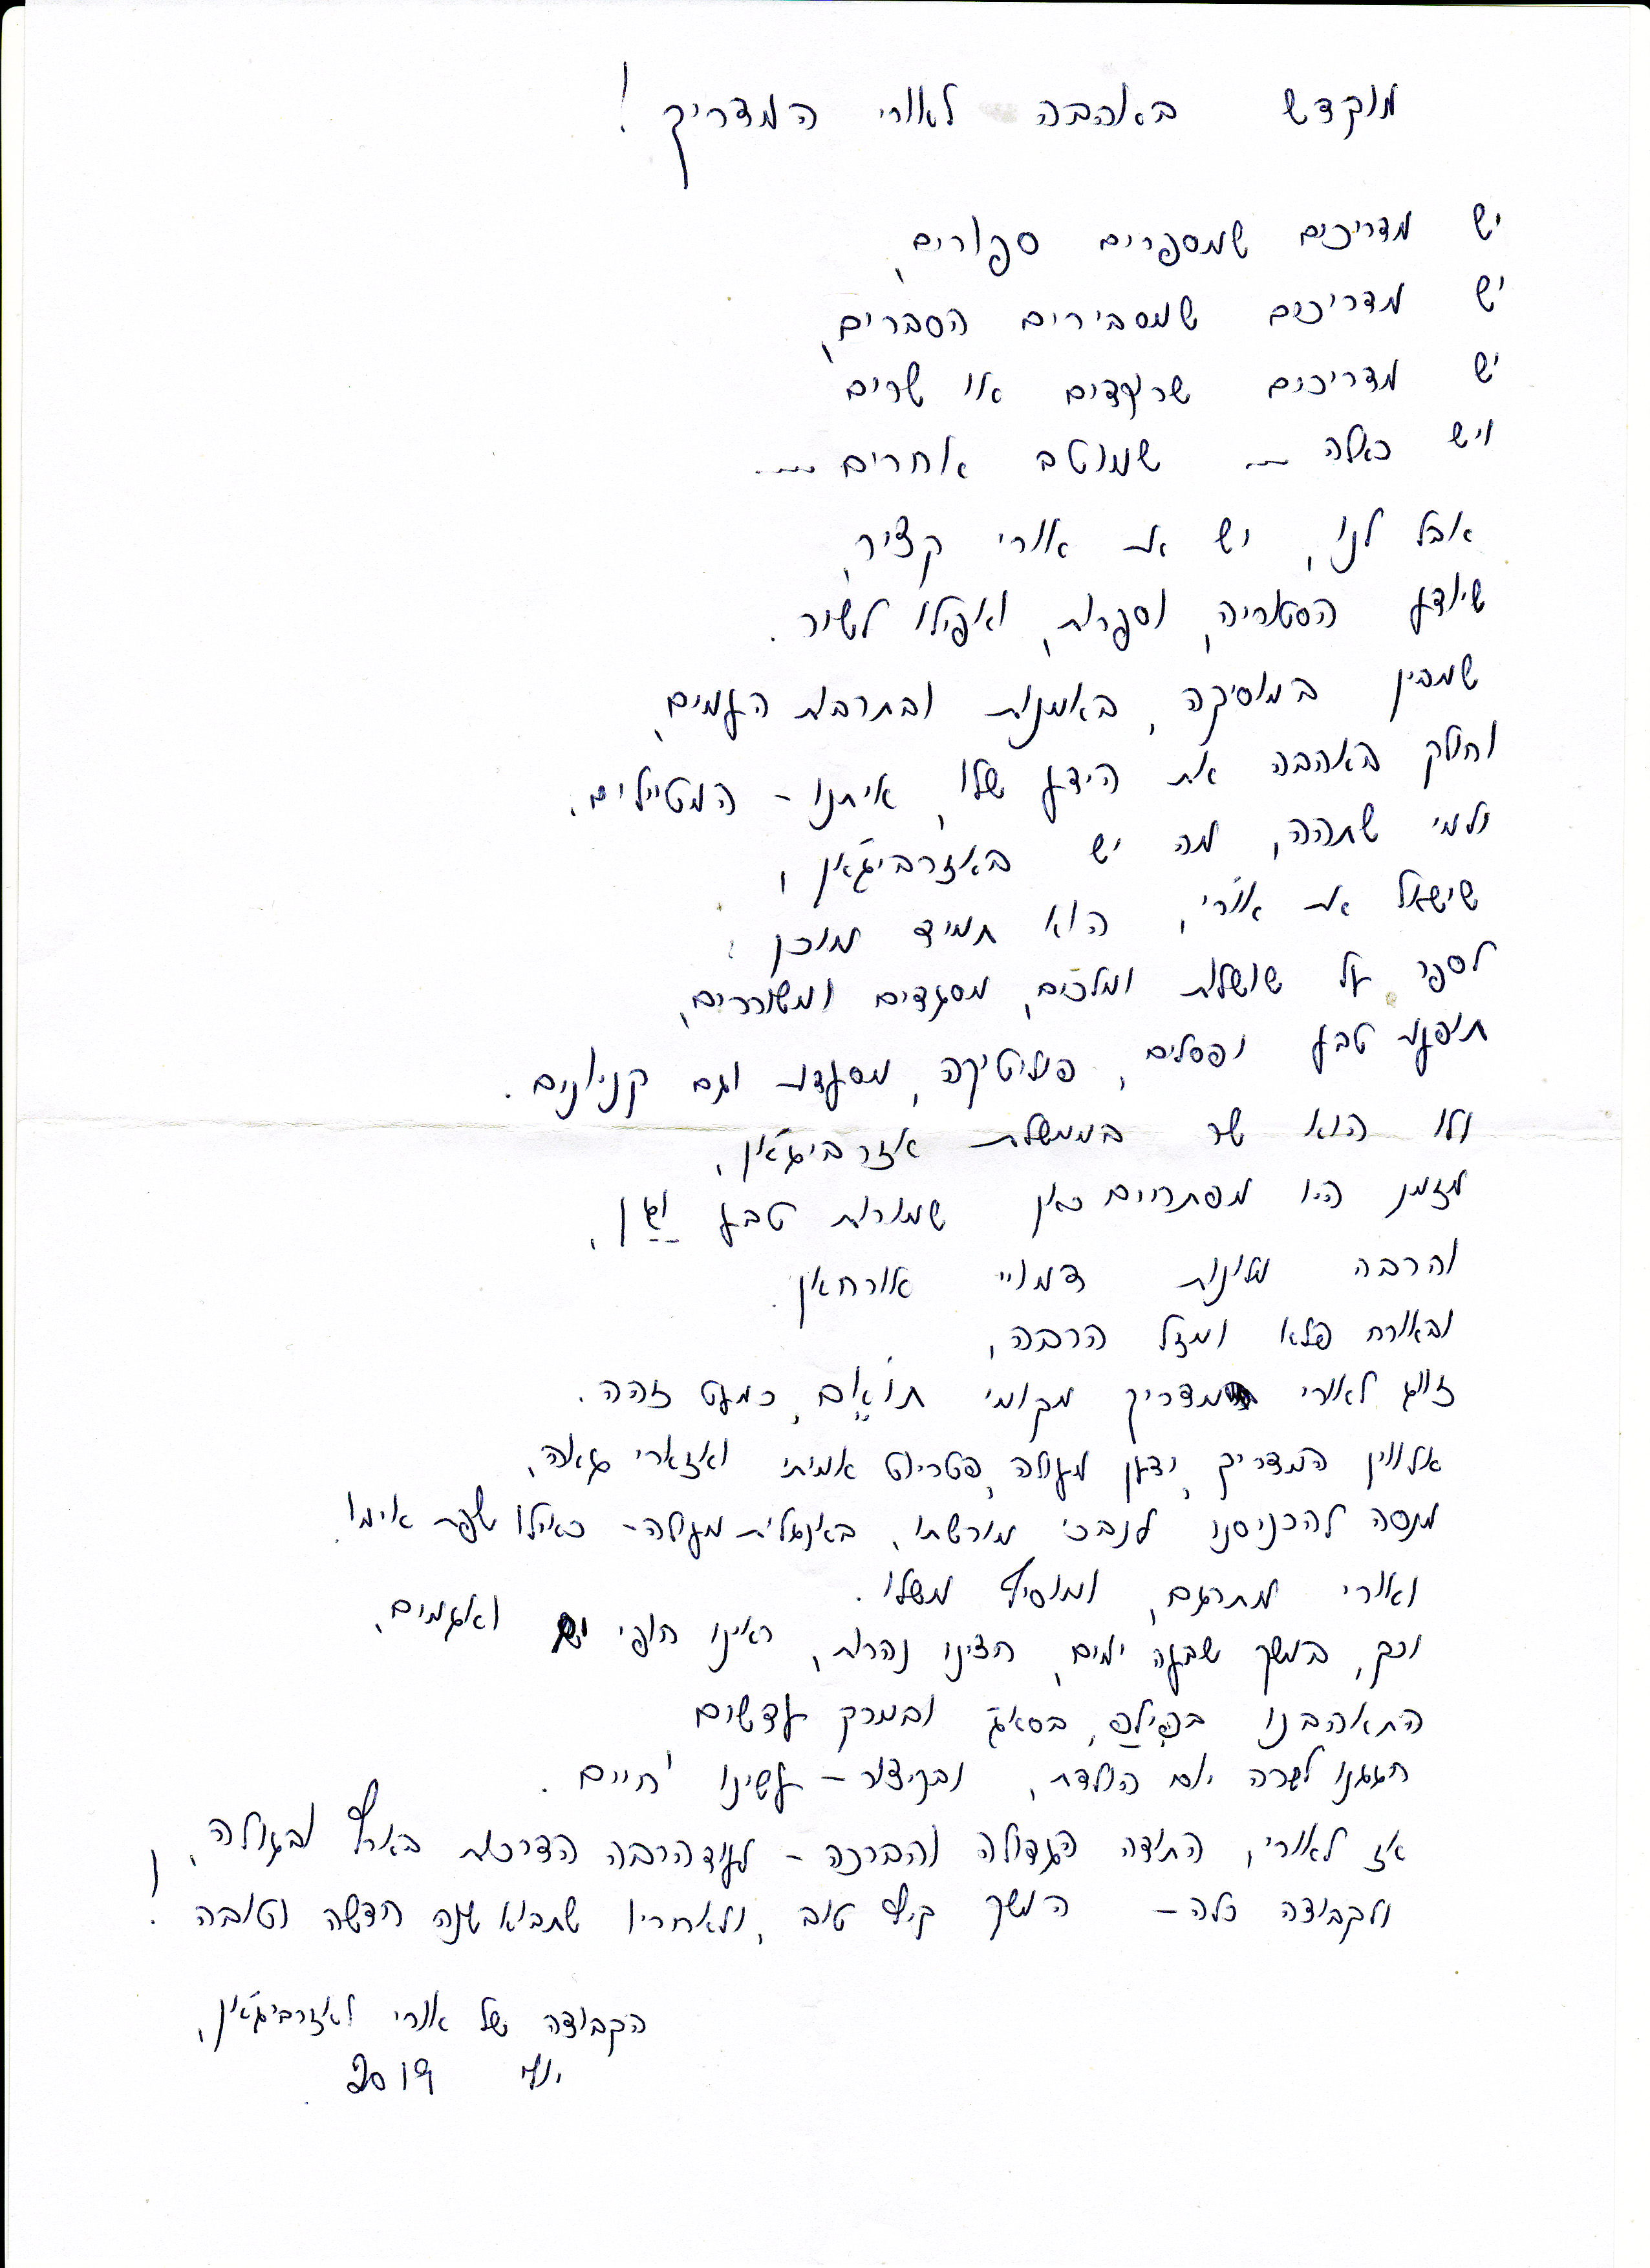 מוקדש באהבה לאורי המדריך!
יש מדריכים שמספרים ספורים,
יש מדריכים שמסבירים הסברים,
יש מדריכים שרוקדים או שרים
ויש כאלה... שמוטב אחרים....
אבל לנו, יש את אורי קציר,
שיודע הסטוריה, וספרות, ואפילו לשיר.
שמבין במוסיקה, באמנות ובתרבות העמים,
וחולק באהבה את הידע שלו, איתנו - המטיילים.
ולמי שתהה, מה יש באזרבייג'אן,
שישאל את אורי, הוא תמיד מוכן:
לספר על שושלות ומלכים, מסגדים ומשוררים,
תופעות טבע ופסלים, פוליטיקה, מסעדות וגם קניונים.
ולו הוא שר בממשלת אזרבייג'אן,
מזמן היו מפתריים כאן שמורות טבע וגן,
והרבה מלונות דמויי אורחאן.
ובאורח פלא ומזל הרבה,
זווג לאורי מדריך מקומי תואם, כמעט זהה.
אלווין המדריך, ידען מעולה, פטריוט אמיתי ואזארי גאה,
מנסה להכניסנו לנבכי מורשתו, באינגלית מעולה - כאילו שפת אימו.
ואורי מתרגם, ומוסיף משלו.
וכך, במשך שבעה ימים, חצינו נהרות, ראינו חופי ים ואגמים,
התאהבנו בפילף, בסאג' ובמרק עדשים
חגגנו לשרה יום הולדת, ובקיצור - עשינו חיים.
אז לאורי, התודה הגדולה והברכה - לעוד הרבה הדרכות בארץ ובגולה,
ולקבוצה כלה - המשך קיץ טוב, ולאחריו שתבוא שנה חדשה וטובה!
הקבוצה של אורי לאזרבייג'אן,
יולי 2019.